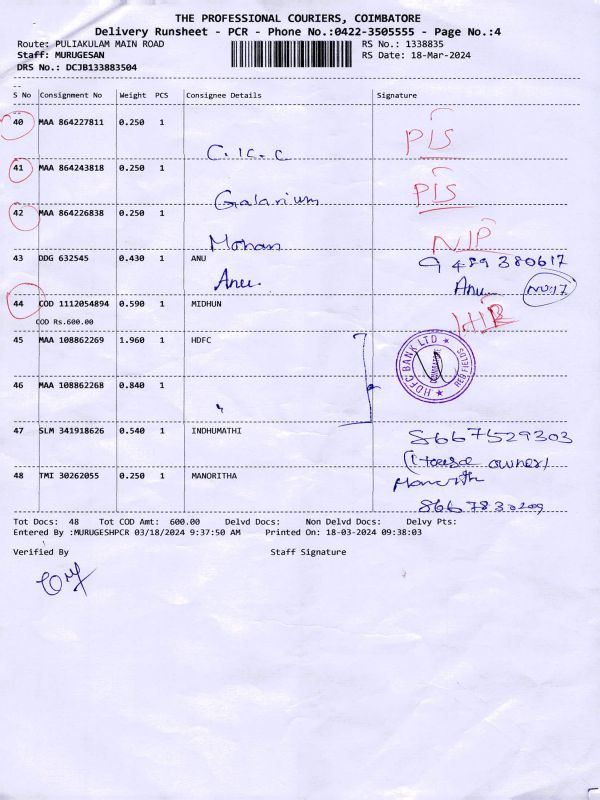 THE PROFESSIONAL COURIERS, COIMBATORE
Delivery Runsheet - PCR - Phone No.:0422-3505555 - Page No.:4
Route: PULIAKULAM MAIN ROAD RS No.: 1338835
Staff: MURUGESAN RS Date: 18-Mar-2024
DRS No.: DCJB133883504
S No Consignment No Weight PCS Consignee Details Signature
40 MAA 864227811 0.250 1
C.K.C PIS
41 MAA 864243818 0.250 1
Galarium PIS
42 MAA 864226838 0.250 1
Mohan NIP
43 DDG 632545 0.430 1 ANU 9489380617
Anu. Anu NO:17
44 COD 1112054894 0.590 1 MIDHUN
COD Rs.600.00
45 MAA 108862269 1.960 1 HDFC
HDFC BANK LTD ★ RED FIELDS ★ COIMBATORE
46 MAA 108862268 0.840 1
47 SLM 341918626 0.540 1 INDHUMATHI 8667529303
(House owner)
48 TMI 30262055 0.250 1 MANORITHA
8667830209
Tot Docs: 48 Tot COD Amt: 600.00 Delvd Docs: Non Delvd Docs: Delvy Pts:
Entered By :MURUGESHPCR 03/18/2024 9:37:50 AM Printed On: 18-03-2024 09:38:03
Verified By Staff Signature